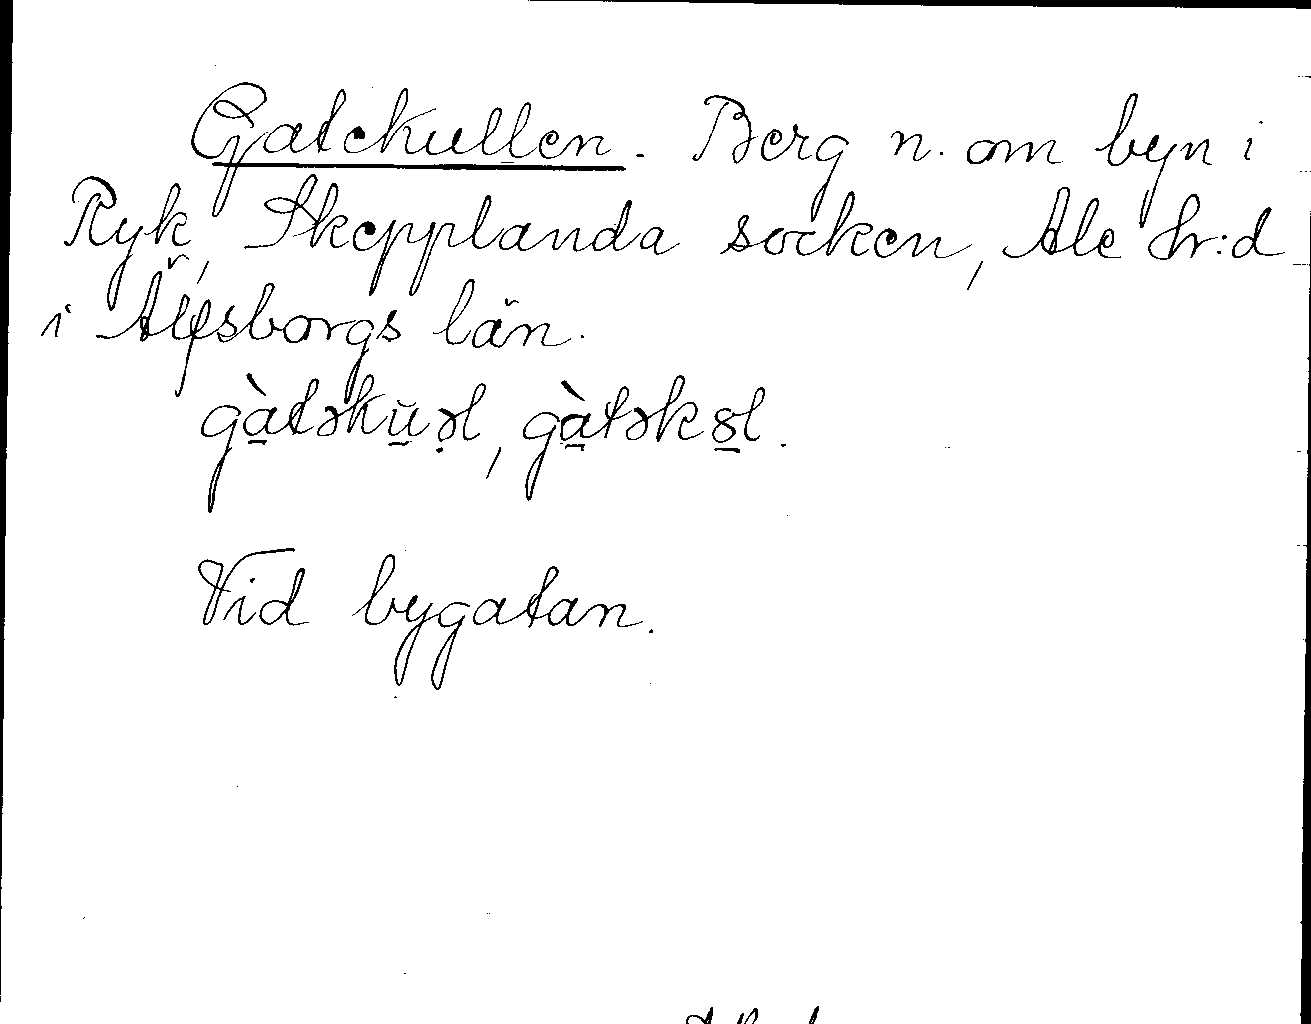 Gatekullen. Berg n. om byn i
Ryk, Skepplanda socken, Ale hr:d
i Älfsborgs län.
gàtəkŭəl, gàtəkŏl.
Vid bygatan.